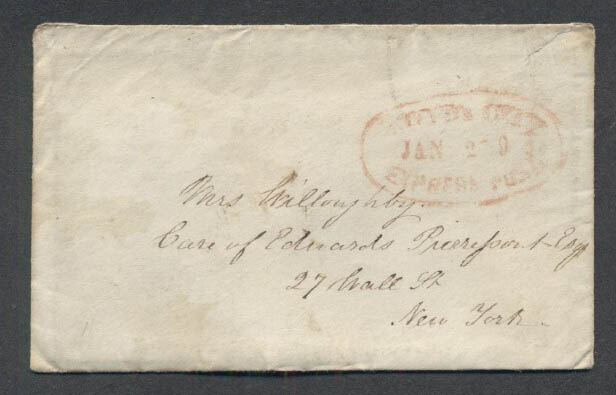 BOYD'S CITY
JAN 20
EXPRESS POST
Mrs Willoughby
Care of Edwards Pierrepont Esq
27 Wall St
New York